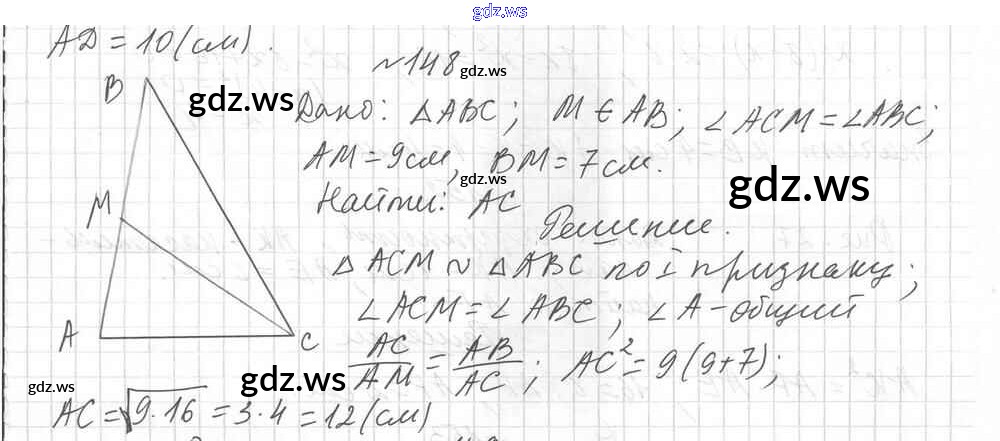 gdz.ws
AD = 10 (см).
№148 gdz.ws
B gdz.ws Дано: △ABC; M ∈ AB; ∠ACM = ∠ABC;
AM = 9см, BM = 7см.
gdz.ws gdz.ws
M Найти: AC
Решение.
△ACM ~ △ABC по I признаку;
∠ACM = ∠ABC; ∠A - общий
A C AC/AM = AB/AC; AC² = 9(9+7);
gdz.ws gdz.ws
AC = √9·16 = 3·4 = 12 (см)